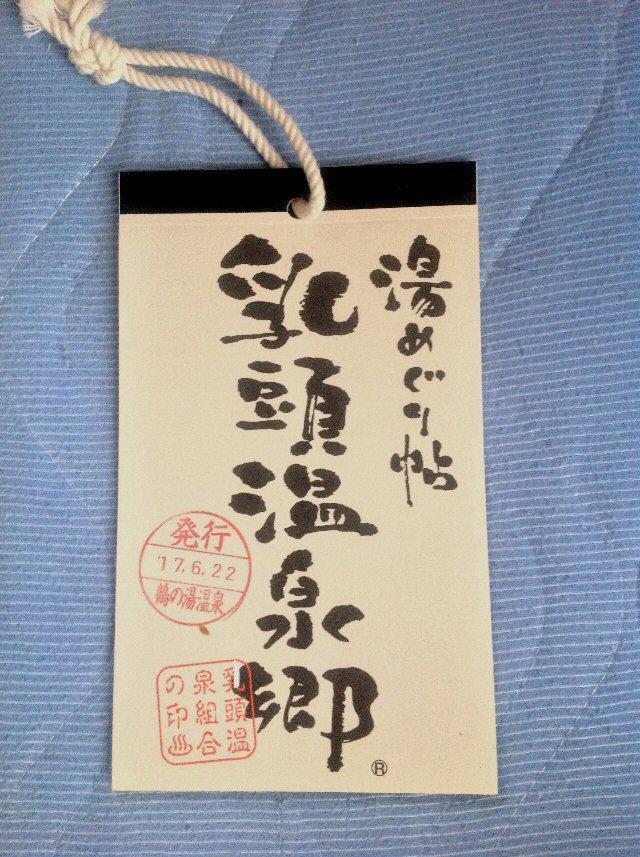 湯めぐり帖
乳頭温泉郷
®
発行
'17.6.22
鶴の湯温泉
乳頭温
泉組合
の印♨